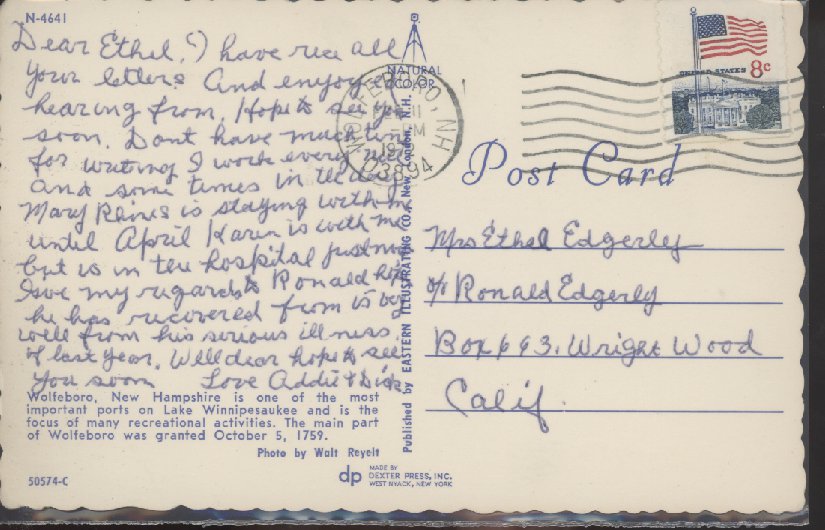 N-4641
Dear Ethel, I have rec all
your letters and enjoyed
hearing from. Hope to see you
soon. Dont have much time
for writing I work every
and some times in the day
Mary Reines is staying with me
until April Karen is with me
but is in the hospital just now
Give my regards to Ronald hope
he has recovered from is
well from his serious illness
of last year. Well dear hope to see
you soon Love Addie & Dick
Wolfeboro, New Hampshire is one of the most
important ports on Lake Winnipesaukee and is the
focus of many recreational activities. The main part
of Wolfeboro was granted October 5, 1759.
Photo by Walt Reyelt
50574-C
NATURAL
COLOR
Published by EASTERN ILLUSTRATING CO., New London, N.H.
dp MADE BY
DEXTER PRESS, INC.
WEST NYACK, NEW YORK
WOLFEBORO, NH
11
M
19
03894
UNITED STATES 8c
Post Card
Mrs Ethel Edgerley
c/o Ronald Edgerly
Box 693. Wright Wood
Calif.